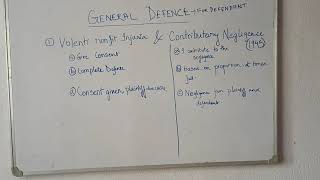 GENERAL DEFENCE → FOR DEFENDANT
① Volenti nonfit Injuria & Contributary Negligence (1945)
ⓐ Give Consent
ⓑ Complete Defence
ⓓ Consent given plaintiff
ⓐ I contribute to the negligence
ⓑ based on proportion
ⓒ Negligence from plaintiff and defendant